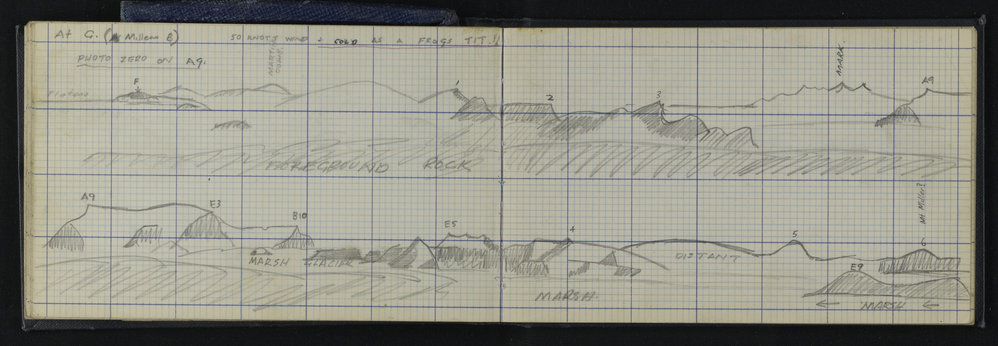 At G. (Millen E) 50 KNOTS WIND & COLD AS A FROGS TIT.!!
PHOTO ZERO ON A9.
MARK.
F
1
2
3
A9
FOREGROUND ROCK
A9
E3
B10
E5
4
5
6
Mt Miller?
MARSH GLACIER
DISTANT
E9
MARSH.
← MARSH ←